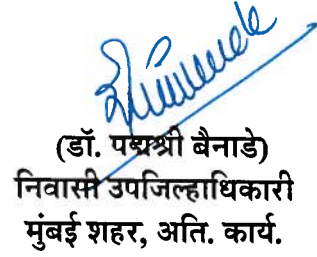 (डॉ. पद्मश्री बैनाडे)
निवासी उपजिल्हाधिकारी
मुंबई शहर, अति. कार्य.